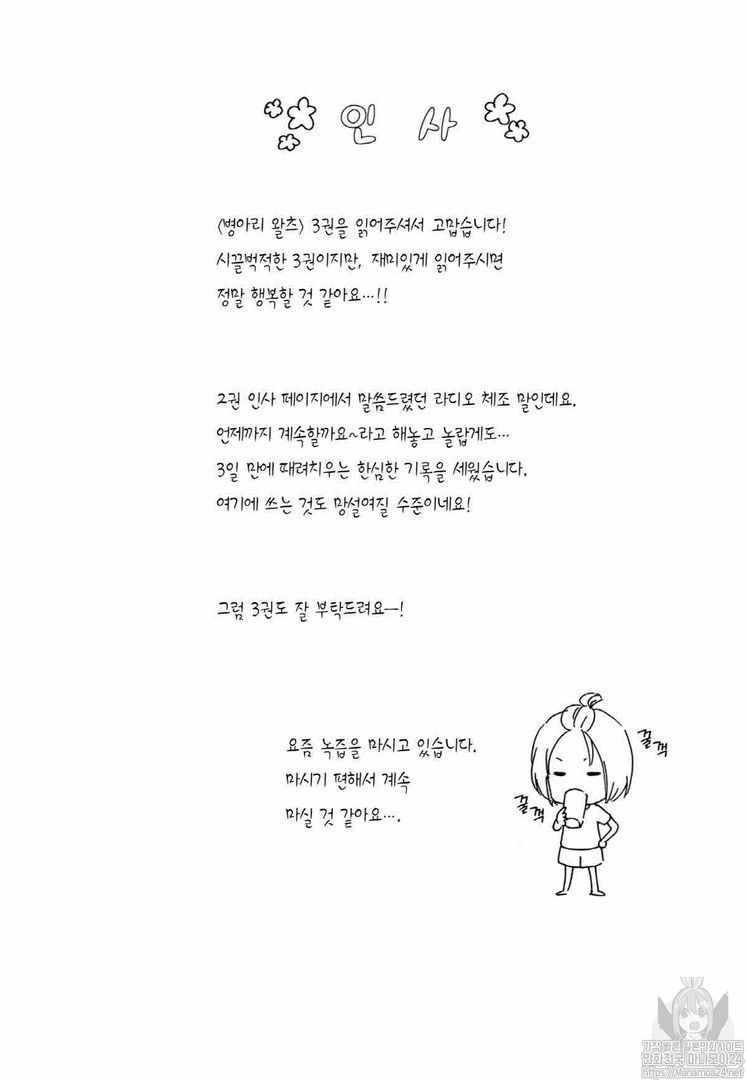 인 사
〈병아리 왈츠〉 3권을 읽어주셔서 고맙습니다!
시끌벅적한 3권이지만, 재미있게 읽어주시면
정말 행복할 것 같아요…!!
2권 인사 페이지에서 말씀드렸던 라디오 체조 말인데요.
언제까지 계속할까요~라고 해놓고 놀랍게도…
3일 만에 때려치우는 한심한 기록을 세웠습니다.
여기에 쓰는 것도 망설여질 수준이네요!
그럼 3권도 잘 부탁드려요—!
요즘 녹즙을 마시고 있습니다.
마시기 편해서 계속
마실 것 같아요….
꿀꺽
꿀꺽
가장빠른일본만화사이트
만화천국 마나모아24
https://Manamoa24.net/